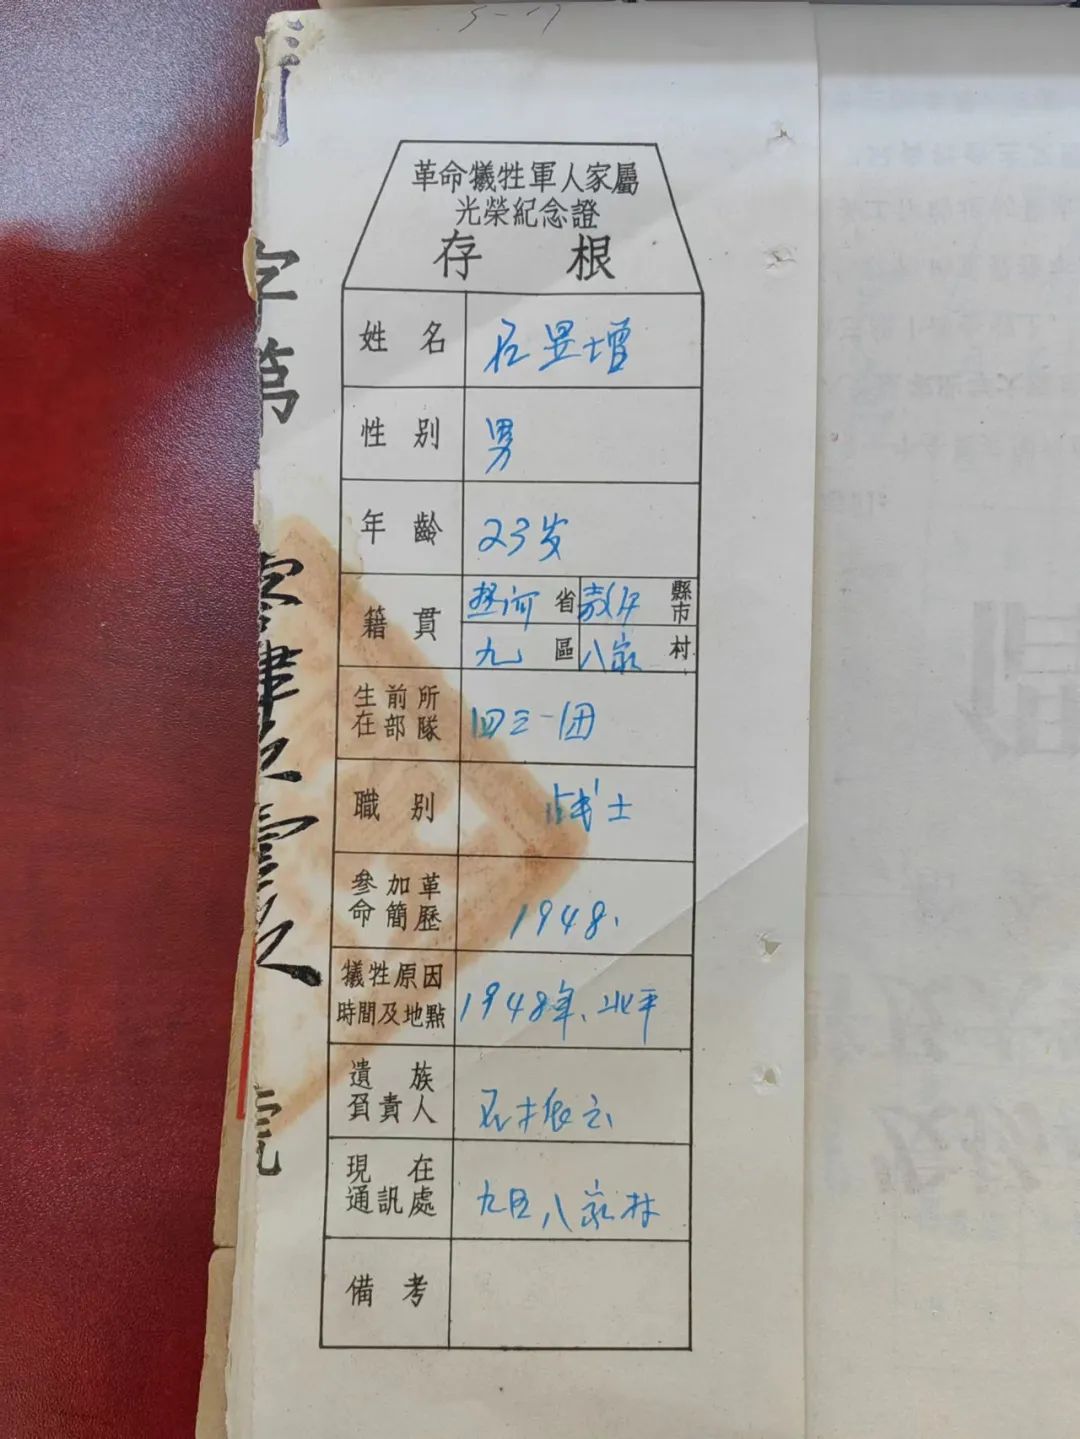 革命犧牲軍人家屬
光榮紀念證
存 根
姓 名
性 別 男
年 齡 23岁
籍 貫
热河 省 縣市
九 區 八家 村
生前所在部隊 四三一团
職 別 战士
參加革命簡歷 1948.
犧牲原因時間及地點 1948年、北平
遺族負責人 振云
現在通訊處 九区八家村
備 考
字第
號